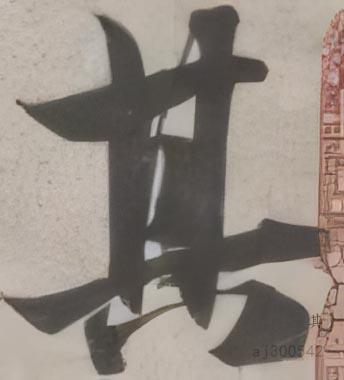 其
斯
aj300542